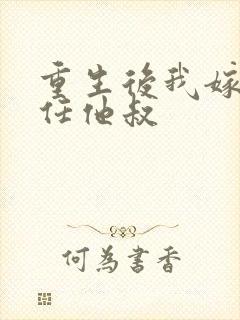 重生後我嫁
任他叔
何為書香